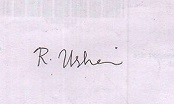 R. Usha